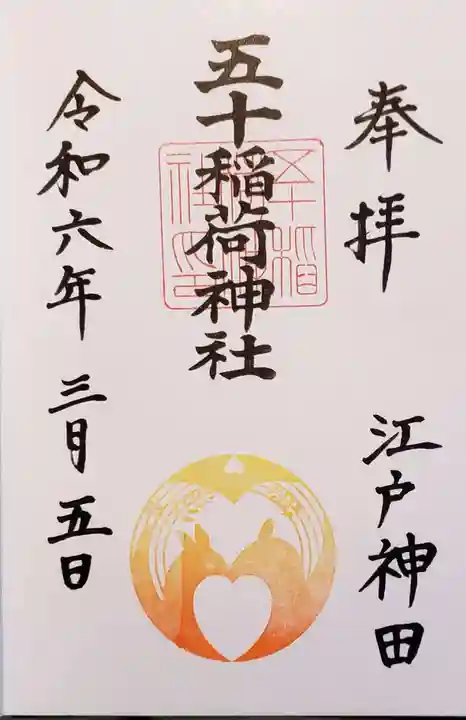 奉拝
江戸神田
五十稲荷神社
令和六年
三月五日